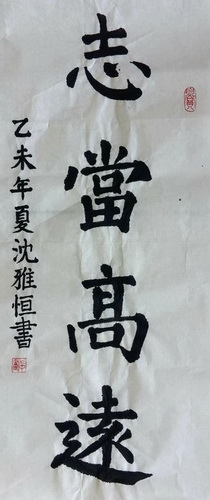 志當高遠
乙未年夏沈雅恒書